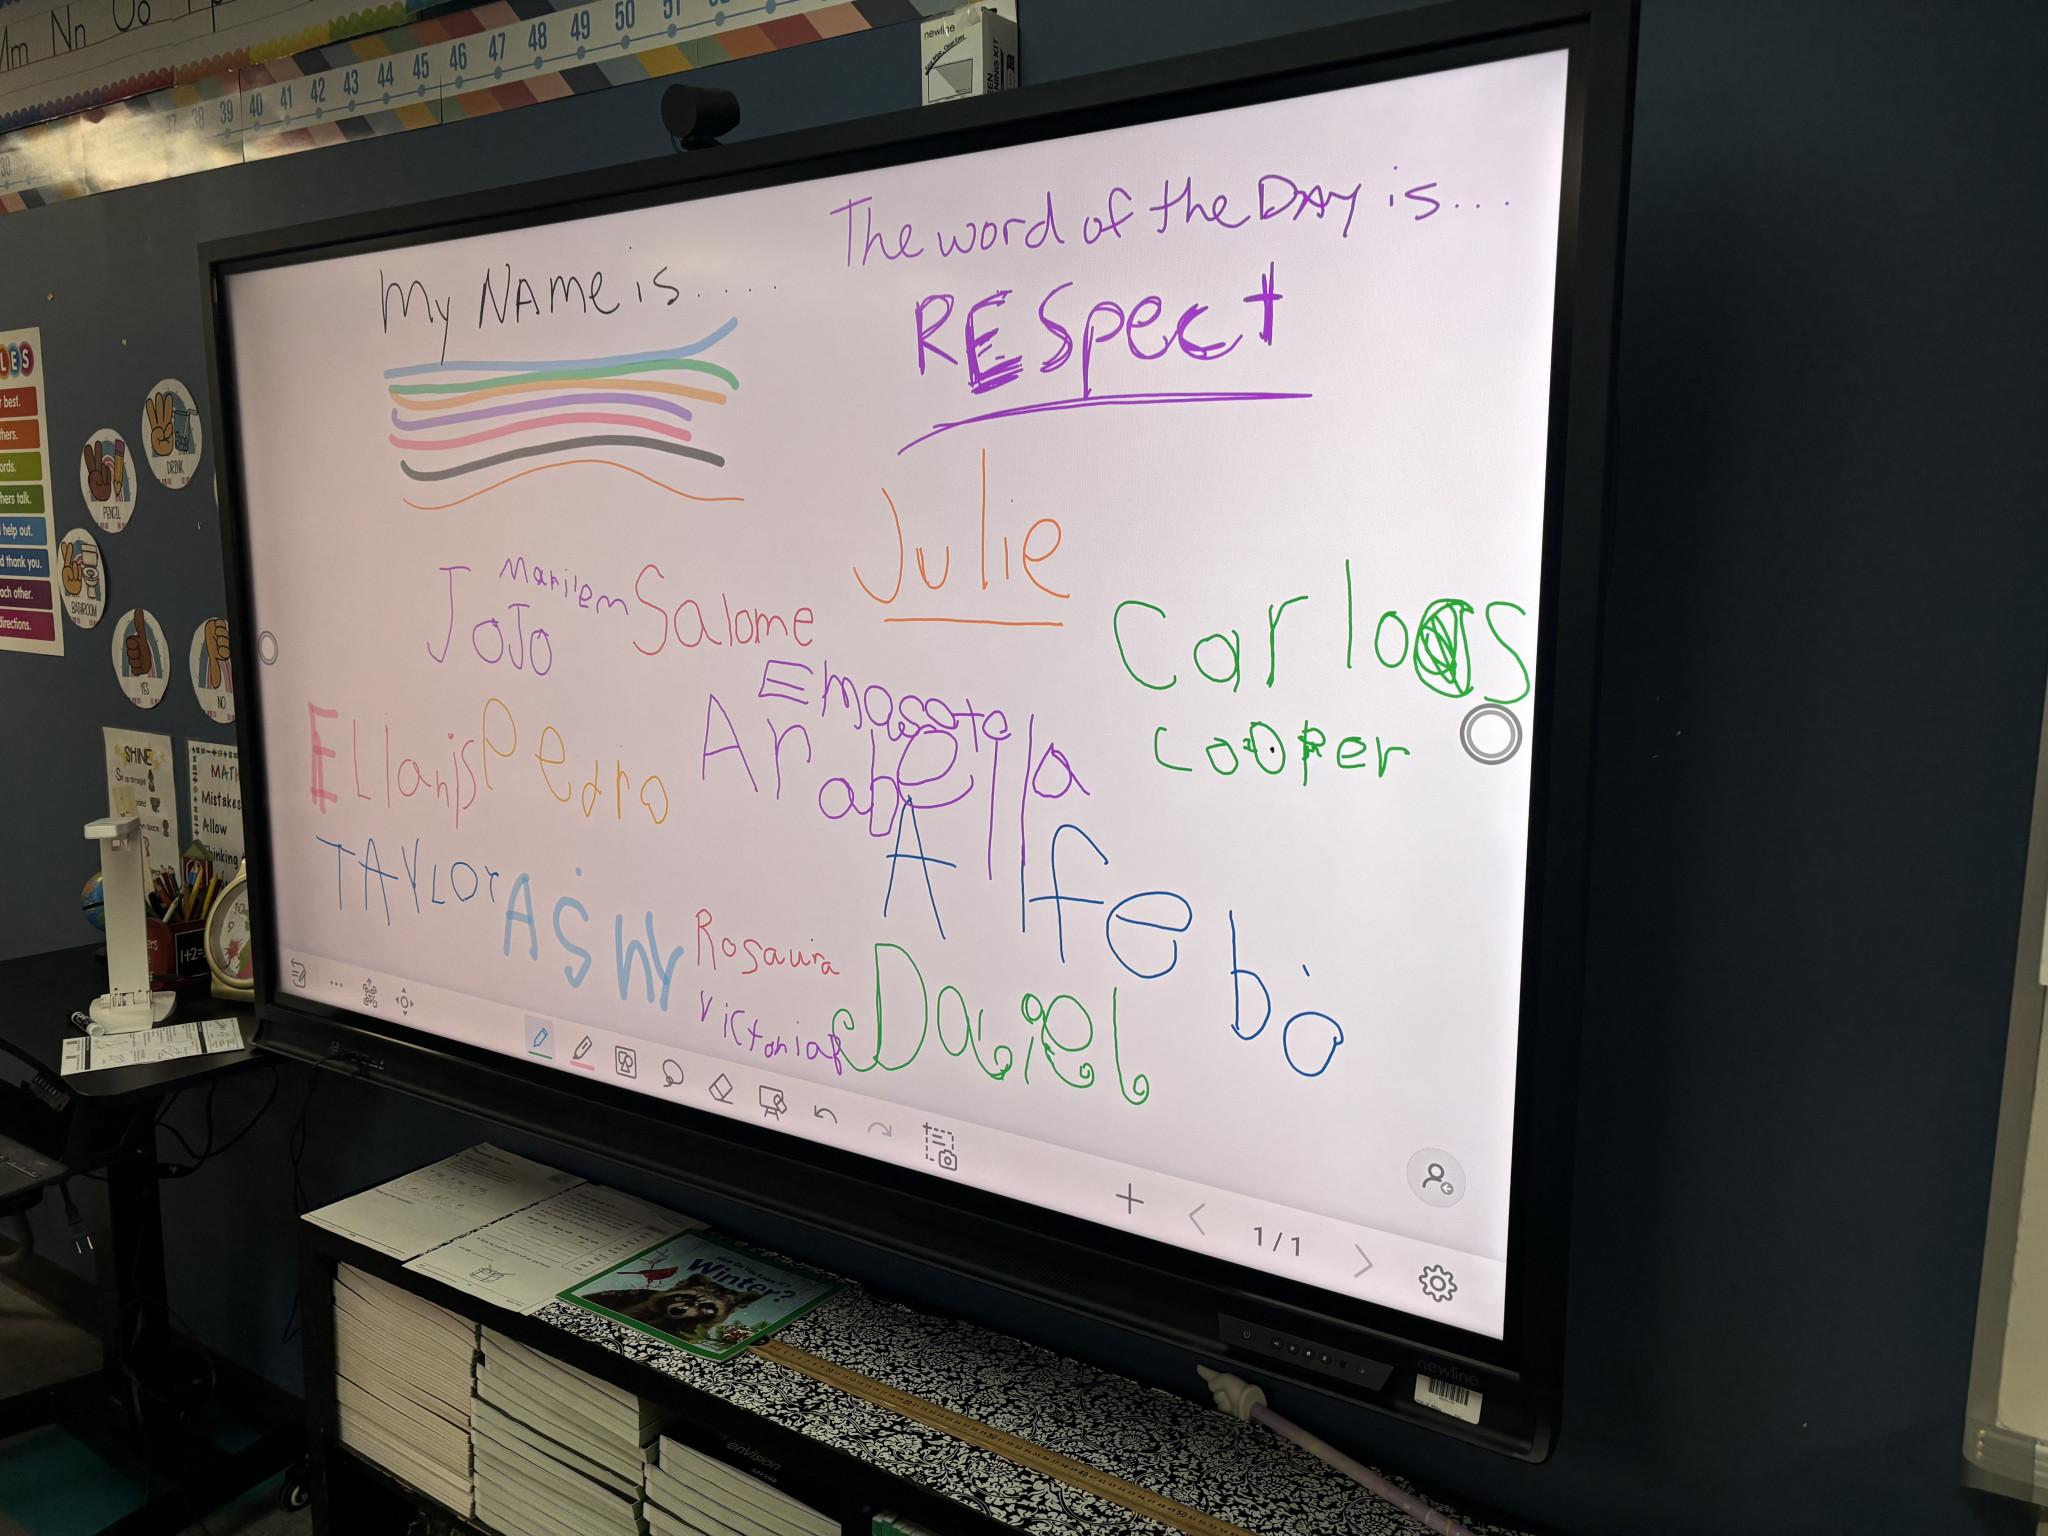 Mm Nn Oo
37 38 39 40 41 42 43 44 45 46 47 48 49 50 51 52
30
newline
The word of the DAY is...
My NAMe is.....
RESpect
Julie
JoJo
Marilem
Salome
Carlos
Emasote
Ellanis
Pedro
Arabella
cooper
TAYLOr
ASHY
Alfebo
Rosaura
Victoria
Daniel
1/1
newline
LES
best.
hers.
ords.
hers talk.
help out.
d thank you.
ach other.
directions.
DRINK
PENCIL
BATHROOM
YES
NO
SHINE
MATH
Mistakes
Allow
Thinking
1+2=
Winter?
enVision